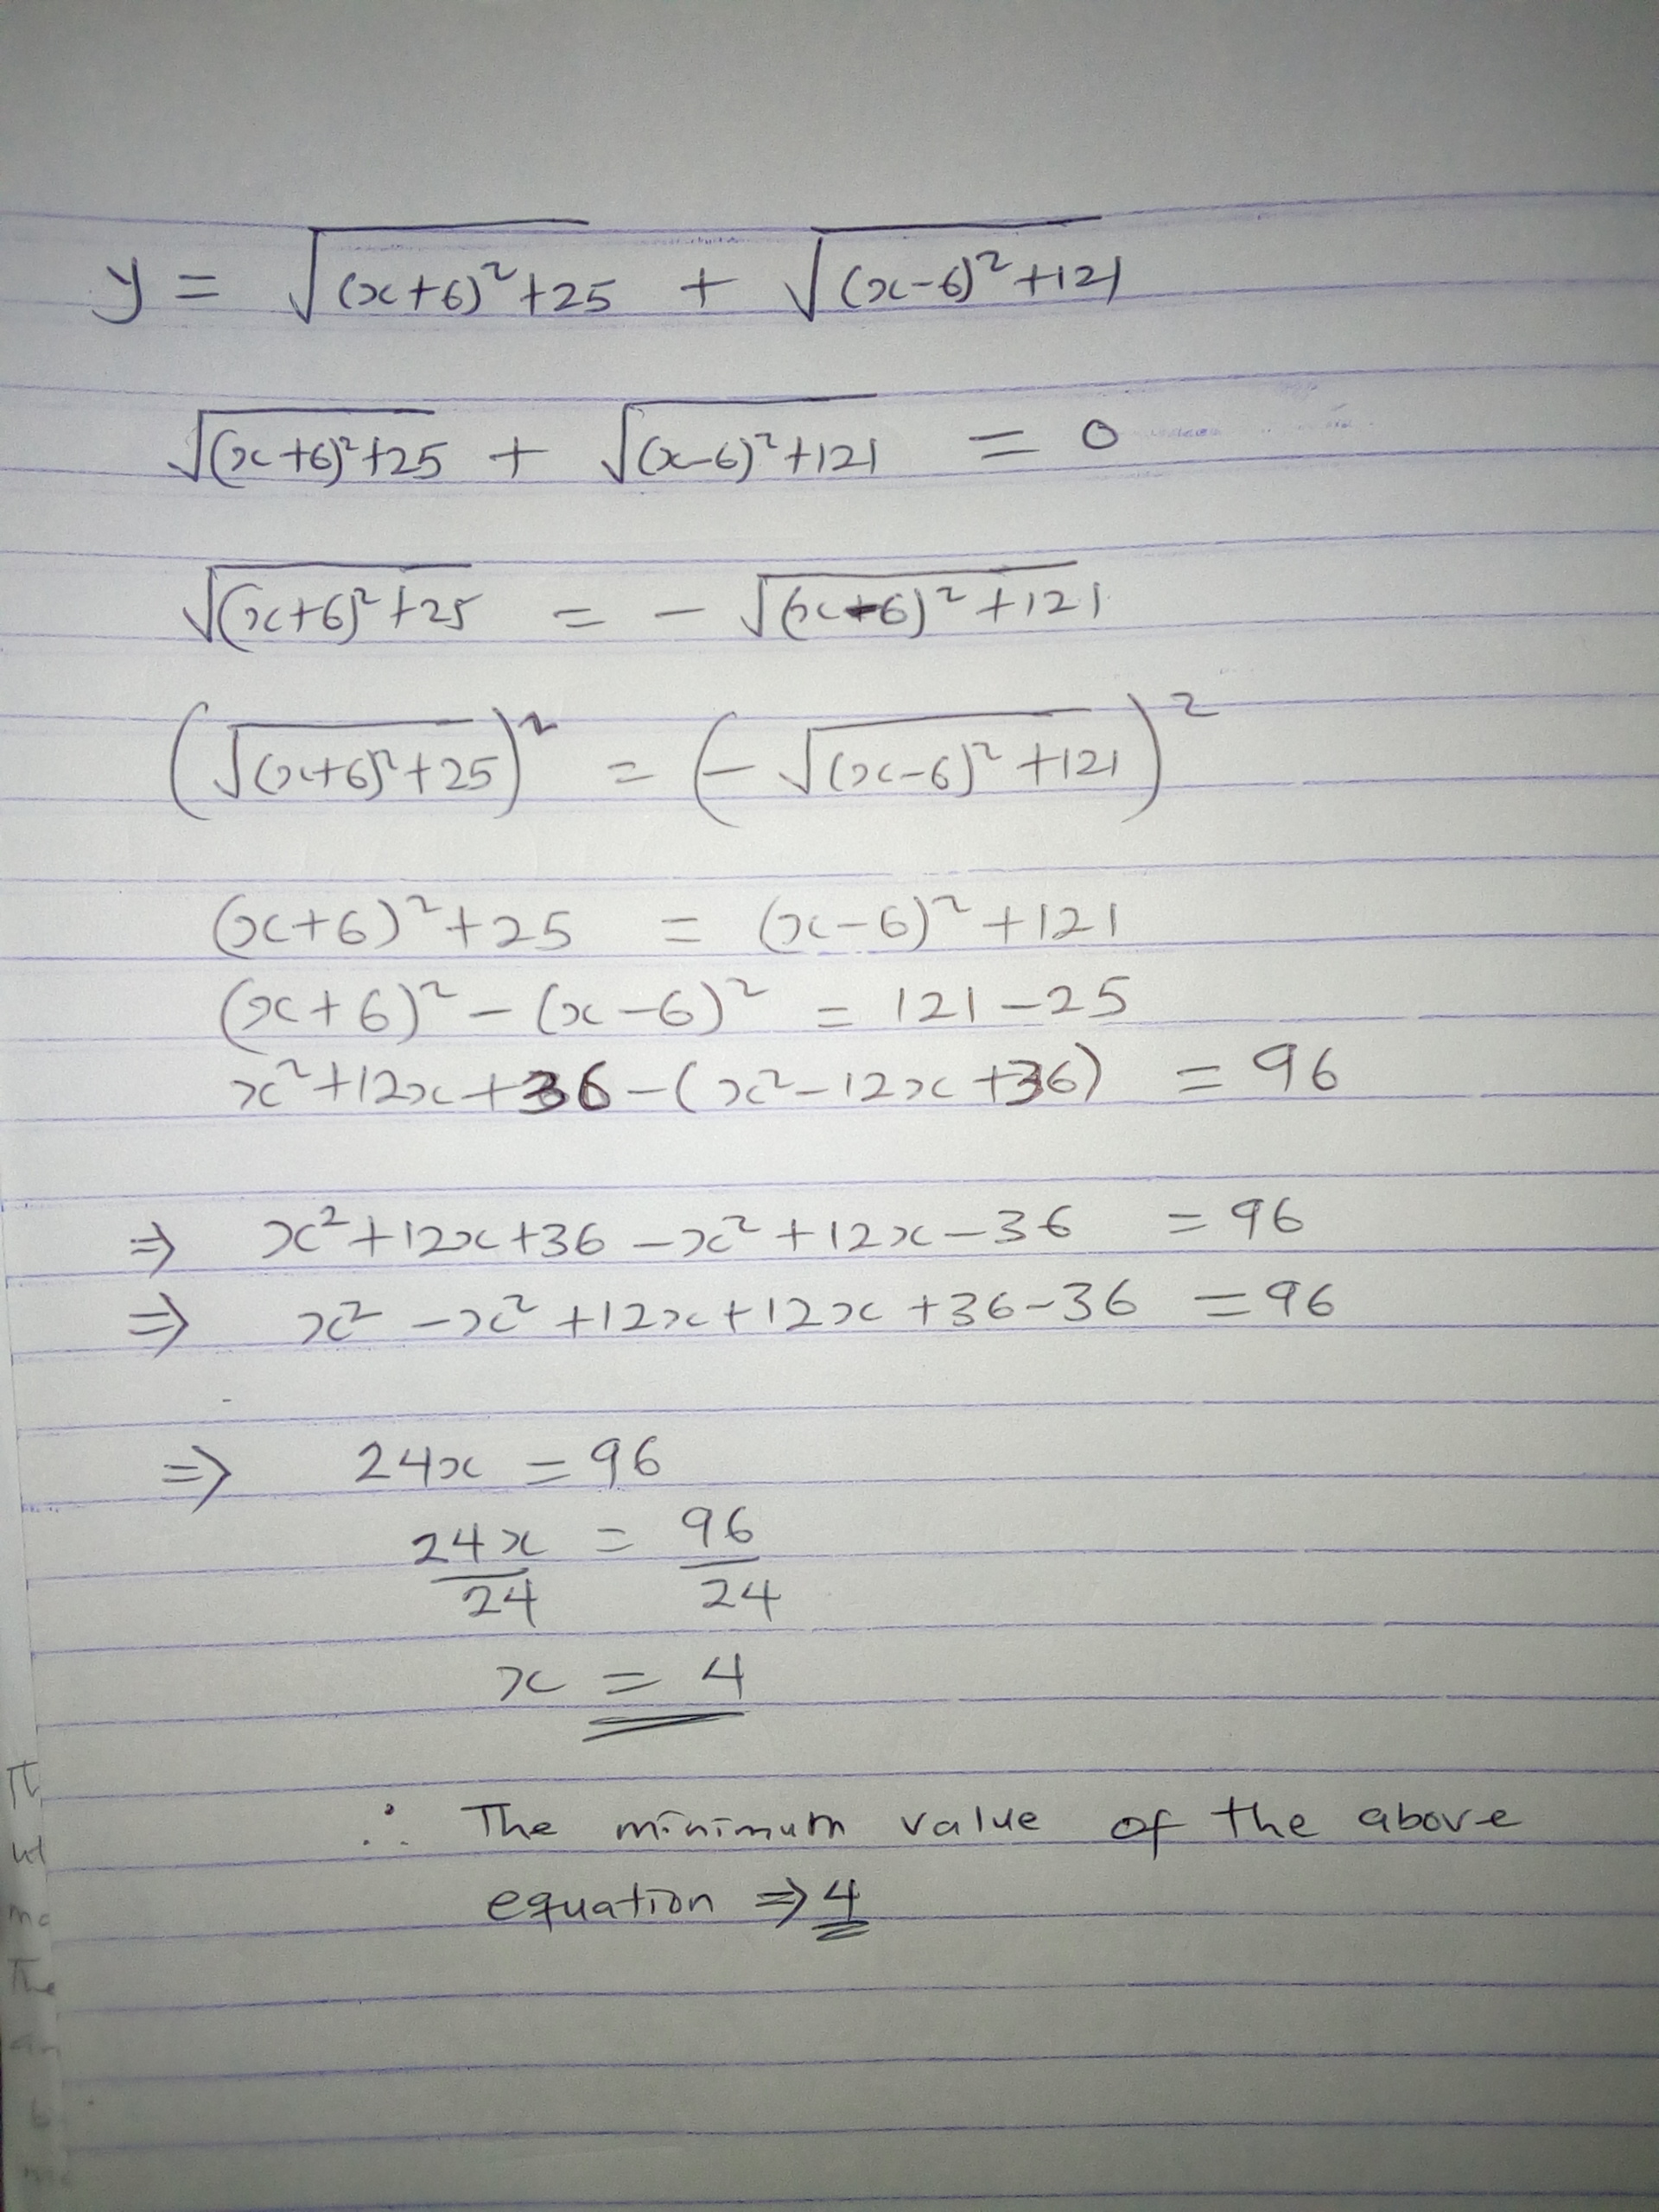 y = √(x+6)²+25 + √(x-6)²+121
√(x+6)²+25 + √(x-6)²+121 = 0
√(x+6)²+25 = - √(x-6)²+121
(√(x+6)²+25)² = (- √(x-6)²+121)²
(x+6)²+25 = (x-6)²+121
(x+6)² - (x-6)² = 121-25
x²+12x+36-(x²-12x+36) = 96
⇒ x²+12x+36-x²+12x-36 = 96
⇒ x²-x²+12x+12x+36-36 = 96
⇒ 24x = 96
24x/24 = 96/24
x = 4
∴ The minimum value of the above
equation ⇒ 4
The